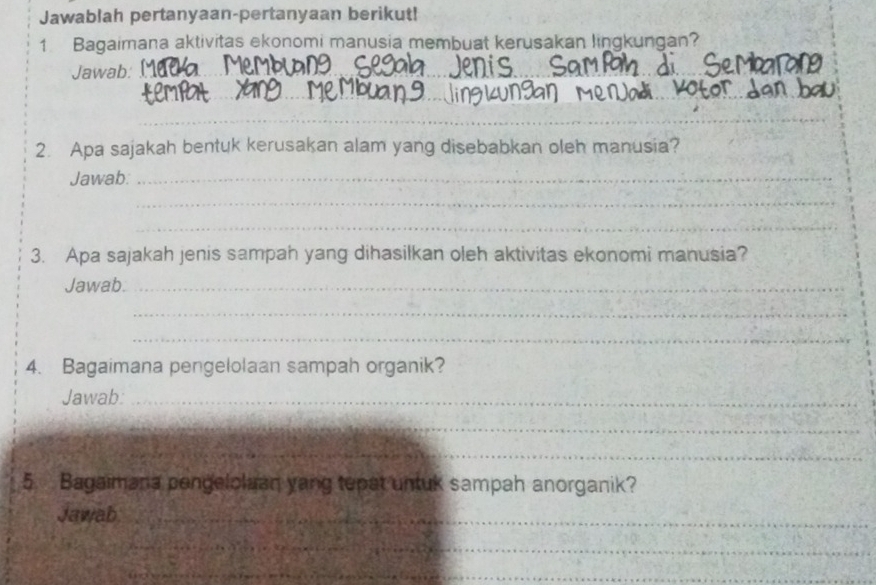 Jawablah pertanyaan-pertanyaan berikut!
1. Bagaimana aktivitas ekonomi manusia membuat kerusakan lingkungan?
Jawab: Mereka Membuang segala Jenis Sampah di Sembarang
tempat yang Membuang lingkungan Menjadi kotor dan bau
2. Apa sajakah bentuk kerusakan alam yang disebabkan oleh manusia?
Jawab:
3. Apa sajakah jenis sampah yang dihasilkan oleh aktivitas ekonomi manusia?
Jawab:
4. Bagaimana pengelolaan sampah organik?
Jawab:
5. Bagaimana pengelolaan yang tepat untuk sampah anorganik?
Jawab